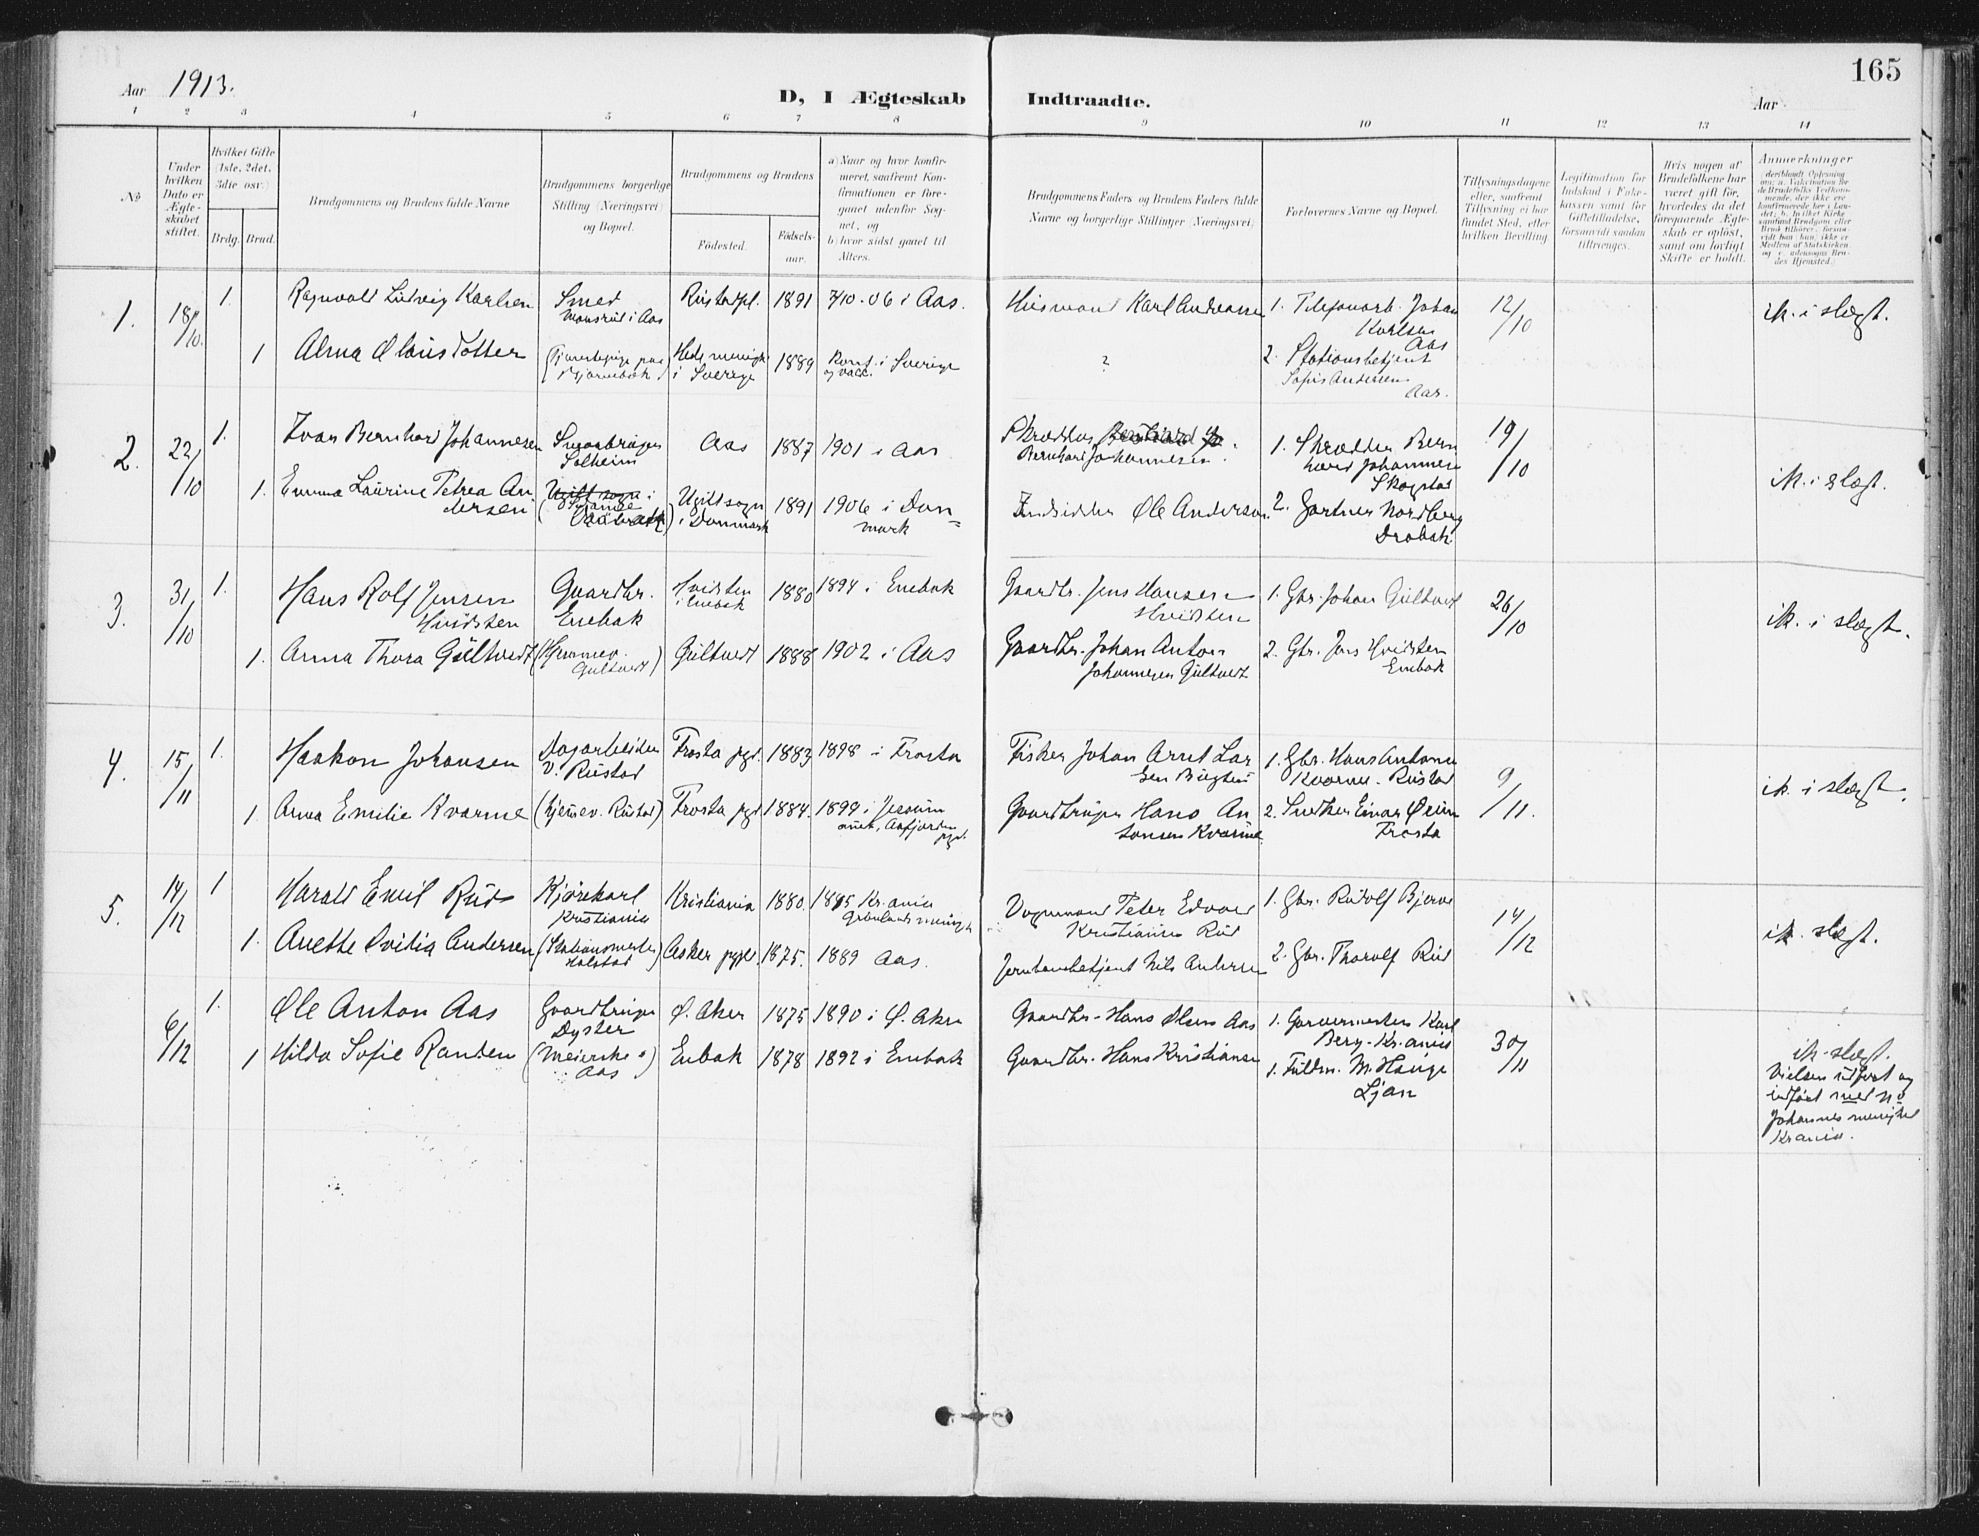 165
Aar 1913.
D, I Ægteskab Indtraadte.
Aar
1 2 3 4 5 6 7 8 9 10 11 12 13 14
No
Under hvilken Dato er Ægteskabet stiftet.
Hvilket Gifte (1ste, 2det, 3die osv.)
Brdg. Brud.
Brudgommens og Brudens fulde Navne
Brudgommens borgerlige Stilling (Næringsvei) og Bopæl.
Brudgommens og Brudens
Fødested.
Fødsels-aar.
a) Naar og hvor konfirmeret, saafremt Konfirmationen er foregaaet udenfor Sognet, og
b) hvor sidst gaaet til Alters.
Brudgommens Faders og Brudens Faders fulde Navne og borgerlige Stillinger (Næringsvei)
Forlovernes Navne og Bopæl.
Tillysningsdagene eller, saafremt Tillysning ei har fundet Sted, efter hvilken Bevilling
Legitimation for Indskud i Enkekassen samt for Giftetilladelse, forsaavidt saadan tiltrænges.
Hvis nogen af Brudefolkene har været gift før, hvorledes da det foregaaende Ægteskab er opløst, samt om lovligt Skifte er holdt.
Anmerkninger
1. 18/10. 1. Ragnvald Ludvig Karlsen Smed i Aas Rustadpl. 1891 7/10-06 i Aas. Husmand Karl Andreassen 1. Telefonarb. Johan Karlsen Aas 12/10 ik. i slægt.
1 Alma Olausdotter (Tjenestepige paa) Hede menigh. i Sverige 1889 konf. og vacc. i Sverige ? 2. Stationsbetjent Andersen Aas.
2. 22/10 1. Ivar Bernhard Johannesen Solheim Aas 1887 1901 i Aas Skrædder Bernhard Johannesen. 1. Skrædder Bernhard Johannesen Skogstad 19/10 ik. i slægt.
1. Emma Laurine Petrea Andersen i Danmark 1891 1906 i Danmark Indsidder Ole Andersen. 2. Gartner Nordberg Drøbak.
3. 31/10 1. Hans Rolf Jensen Hvidsten Gaardbr. Enebak Hvidsten i Enebak 1880 1894 i Enebak Gaardbr. Jens Hansen Hvidsten 1. Gbr. Johan Gultvedt 26/10 ik. i slægt.
1. Anna Thora Gultvedt (Hjemmev. Gultvedt) Gultvedt 1888 1902 i Aas Gaardbr. Johan Anton Johannesen Gultvedt 2. Gbr. Jens Hvidsten Enebak
4. 15/11 1. Haakon Johansen Dagarbeider v. Rustad Frosta pgd. 1883 1898 i Frosta Fisker Johan Arnt Larsen 1. Gbr. Hans Antonsen Kvarme - Rustad 9/11. ik. i slægt.
1. Anna Emilie Kvarme (hjemmev. Rustad) Frosta pgd 1884. 1899 i Aafjorden pgd. Gaardbruger Hans Antonsen Kvarme. 2. Snedker Einar Øien Frosta
5. 14/12 1 Harald Emil Rud Kjørekarl Kristiania Kristiania 1880. 1895 Kr.ania Grønlands menigh. Vognmand Peter Edvard Kristiansen Rud 1. Gbr. Rudolf Bjerve 14/12 ik. slægt.
1. Anette Andersen (Stationsmester Holstad) Asker pgd. 1875. 1889 Aas. Jernbanebetjent Nils Andersen 2. Gbr. Thorolf Rud
6/12 1. Ole Anton Aas Gaardbruger Dyster Ø. Aker 1875 1890 i Ø. Aker Gaardbr. Hans Olsen Aas 1. Garvermester Karl Berg - Kr.ania 30/11 ik. slægt.
1 Hilda Sofie Randen (Meierske Aas) Enebak 1878 1892 i Enebak Gaardbr. Hans Kristiansen 1. Fuldm. M. Hauge Ljan
Vielsen udført og indført med No
Johannes menighed
Kr.ania.